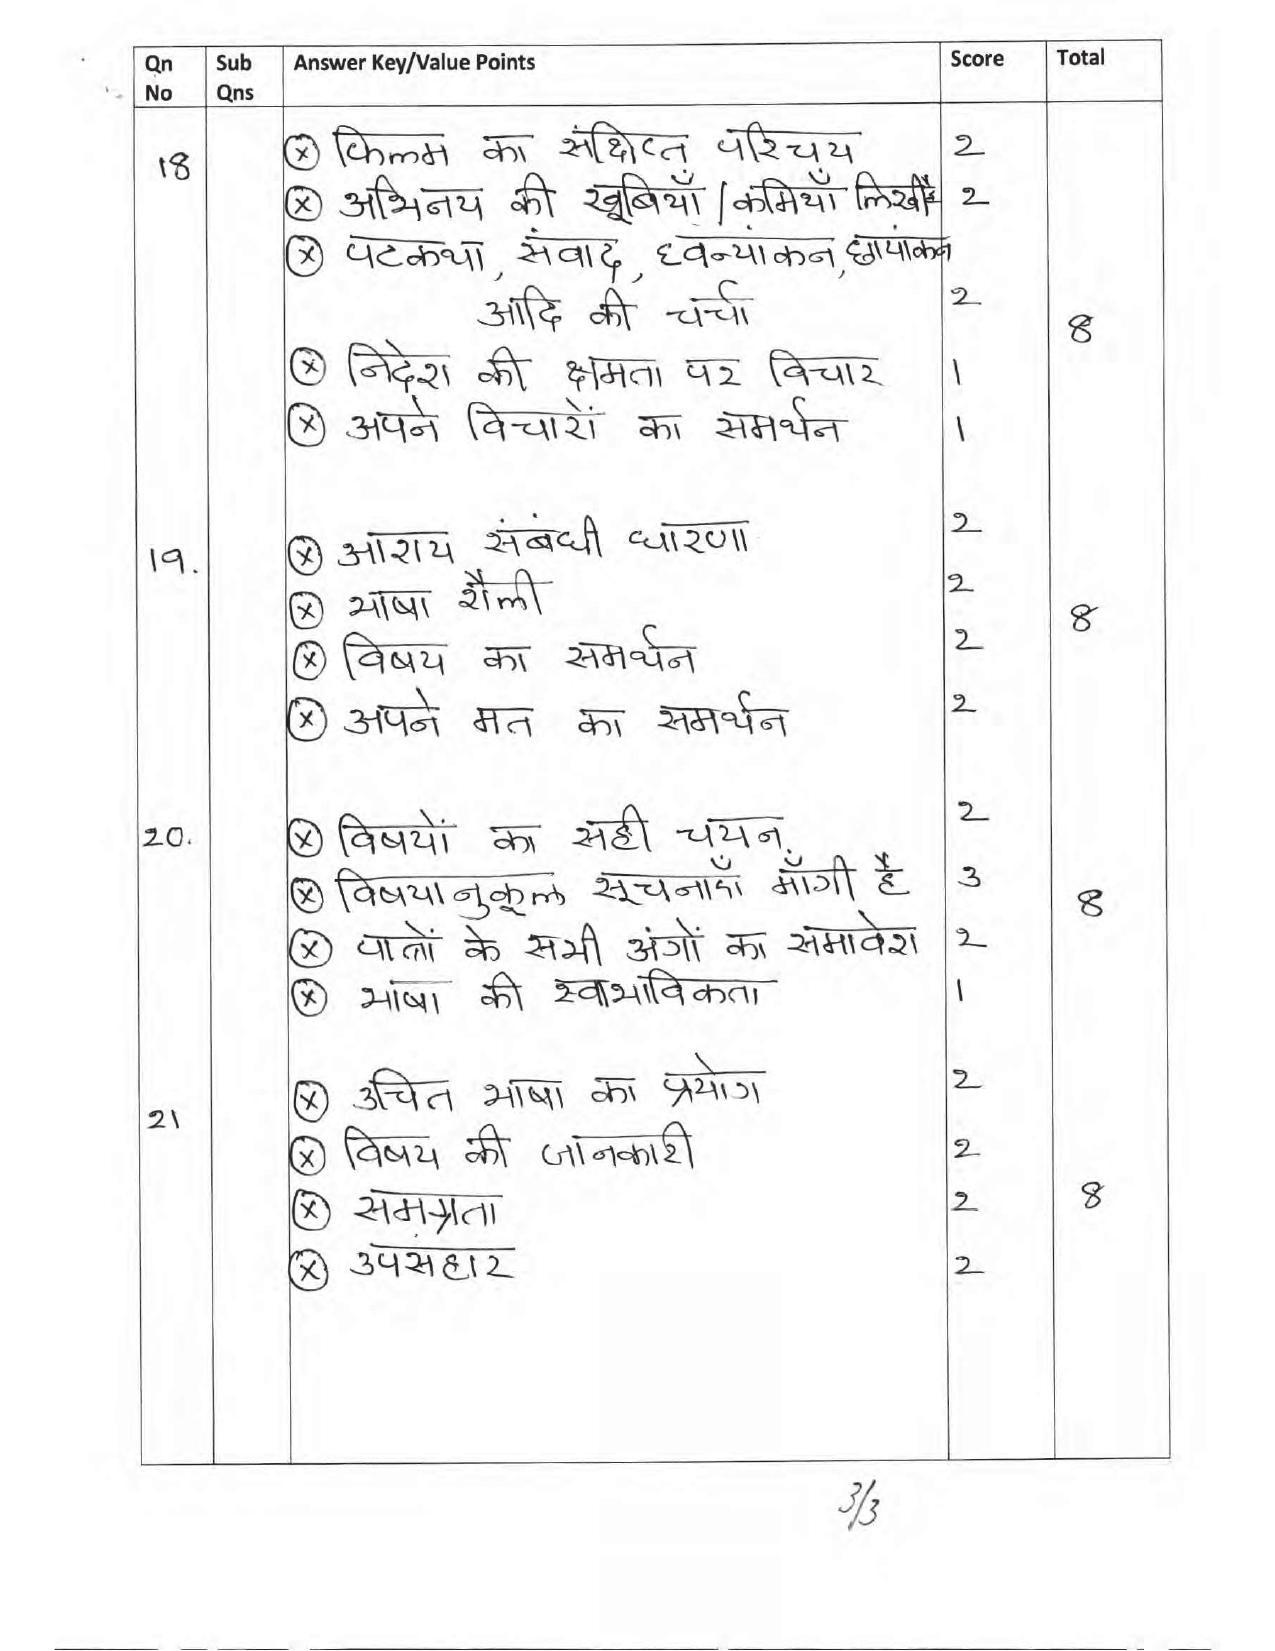 Qn No Sub Qns Answer Key/Value Points Score Total
18 ⊗ फिल्म का संक्षिप्त परिचय 2
⊗ अभिनय की खूबियाँ / कमियाँ लिखी हैं 2
⊗ पटकथा, संवाद, ध्वन्यांकन, छायांकन
आदि की चर्चा 2 8
⊗ निदेश की क्षमता पर विचार 1
⊗ अपने विचारों का समर्थन 1
19. ⊗ आशय संबंधी धारणा 2
⊗ भाषा शैली 2 8
⊗ विषय का समर्थन 2
⊗ अपने मत का समर्थन 2
20. ⊗ विषयों का सही चयन 2
⊗ विषयानुकूल सूचनाएँ माँगी है 3 8
⊗ के सभी अंगों का समावेश 2
⊗ भाषा की स्वाभाविकता 1
21 ⊗ उचित भाषा का प्रयोग 2
⊗ विषय की जानकारी 2
⊗ समग्रता 2 8
⊗ उपसंहार 2
3/3